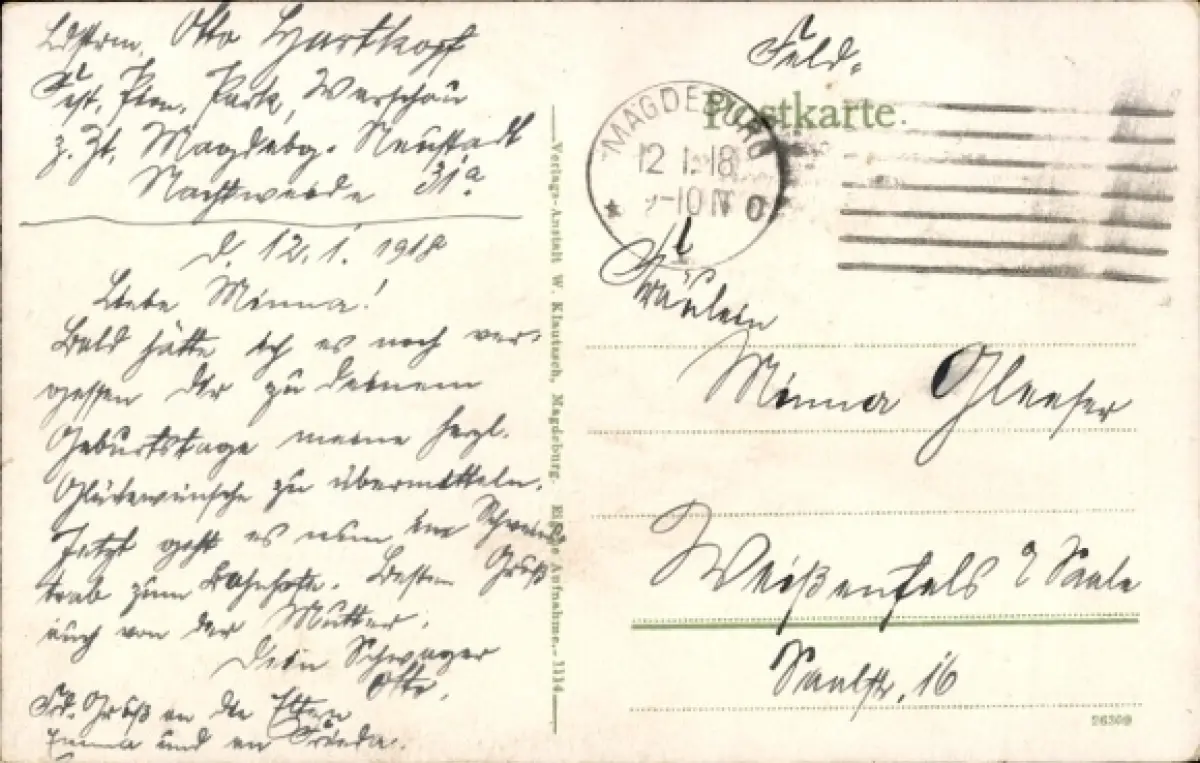 Ldstrm. Otto Hartkopf
Fest. Fern. Park, Warschau
z. Zt. Magdebg. Neustadt
Nachtweide 31a
d. 12.1.1918
Liebe Minna!
Bald hätte ich es noch ver-
gessen Dir zu Deinem
Geburtstage meine herzl.
Glückwünsche zu übermitteln.
Jetzt geht es nun im Schweins-
trab zum Bahnhofe. Besten Gruß
auch von der Mutter
Dein Schwager
Otto.
Frdl. Gruß an die Eltern
Emma und an Frieda.
Verlags-Anstalt W. Klautzsch, Magdeburg. Eigene Aufnahme.- 1114
Feld.
Postkarte.
MAGDEBURG
12 1.18
-10 N
Fräulein
Minna
Weißenfels a Saale
Saalstr. 16
26309